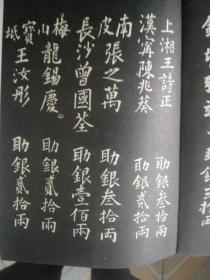 上湘王詩正 助銀叁拾兩
漢寧陳兆葵 助銀貳拾兩
南皮張之萬 助銀叁拾兩
長沙曾國荃 助銀壹佰兩
梅小龍錫慶。 助銀貳拾兩
寶坻王汝彤 助銀貳拾兩